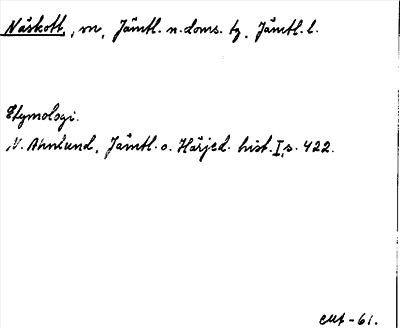 Näskott, sn, Jämtl. n. doms. tg, Jämtl. l.
Etymologi.
N. Ahnlund, Jämtl. o. Härjed. hist. I, s. 422.
-61.